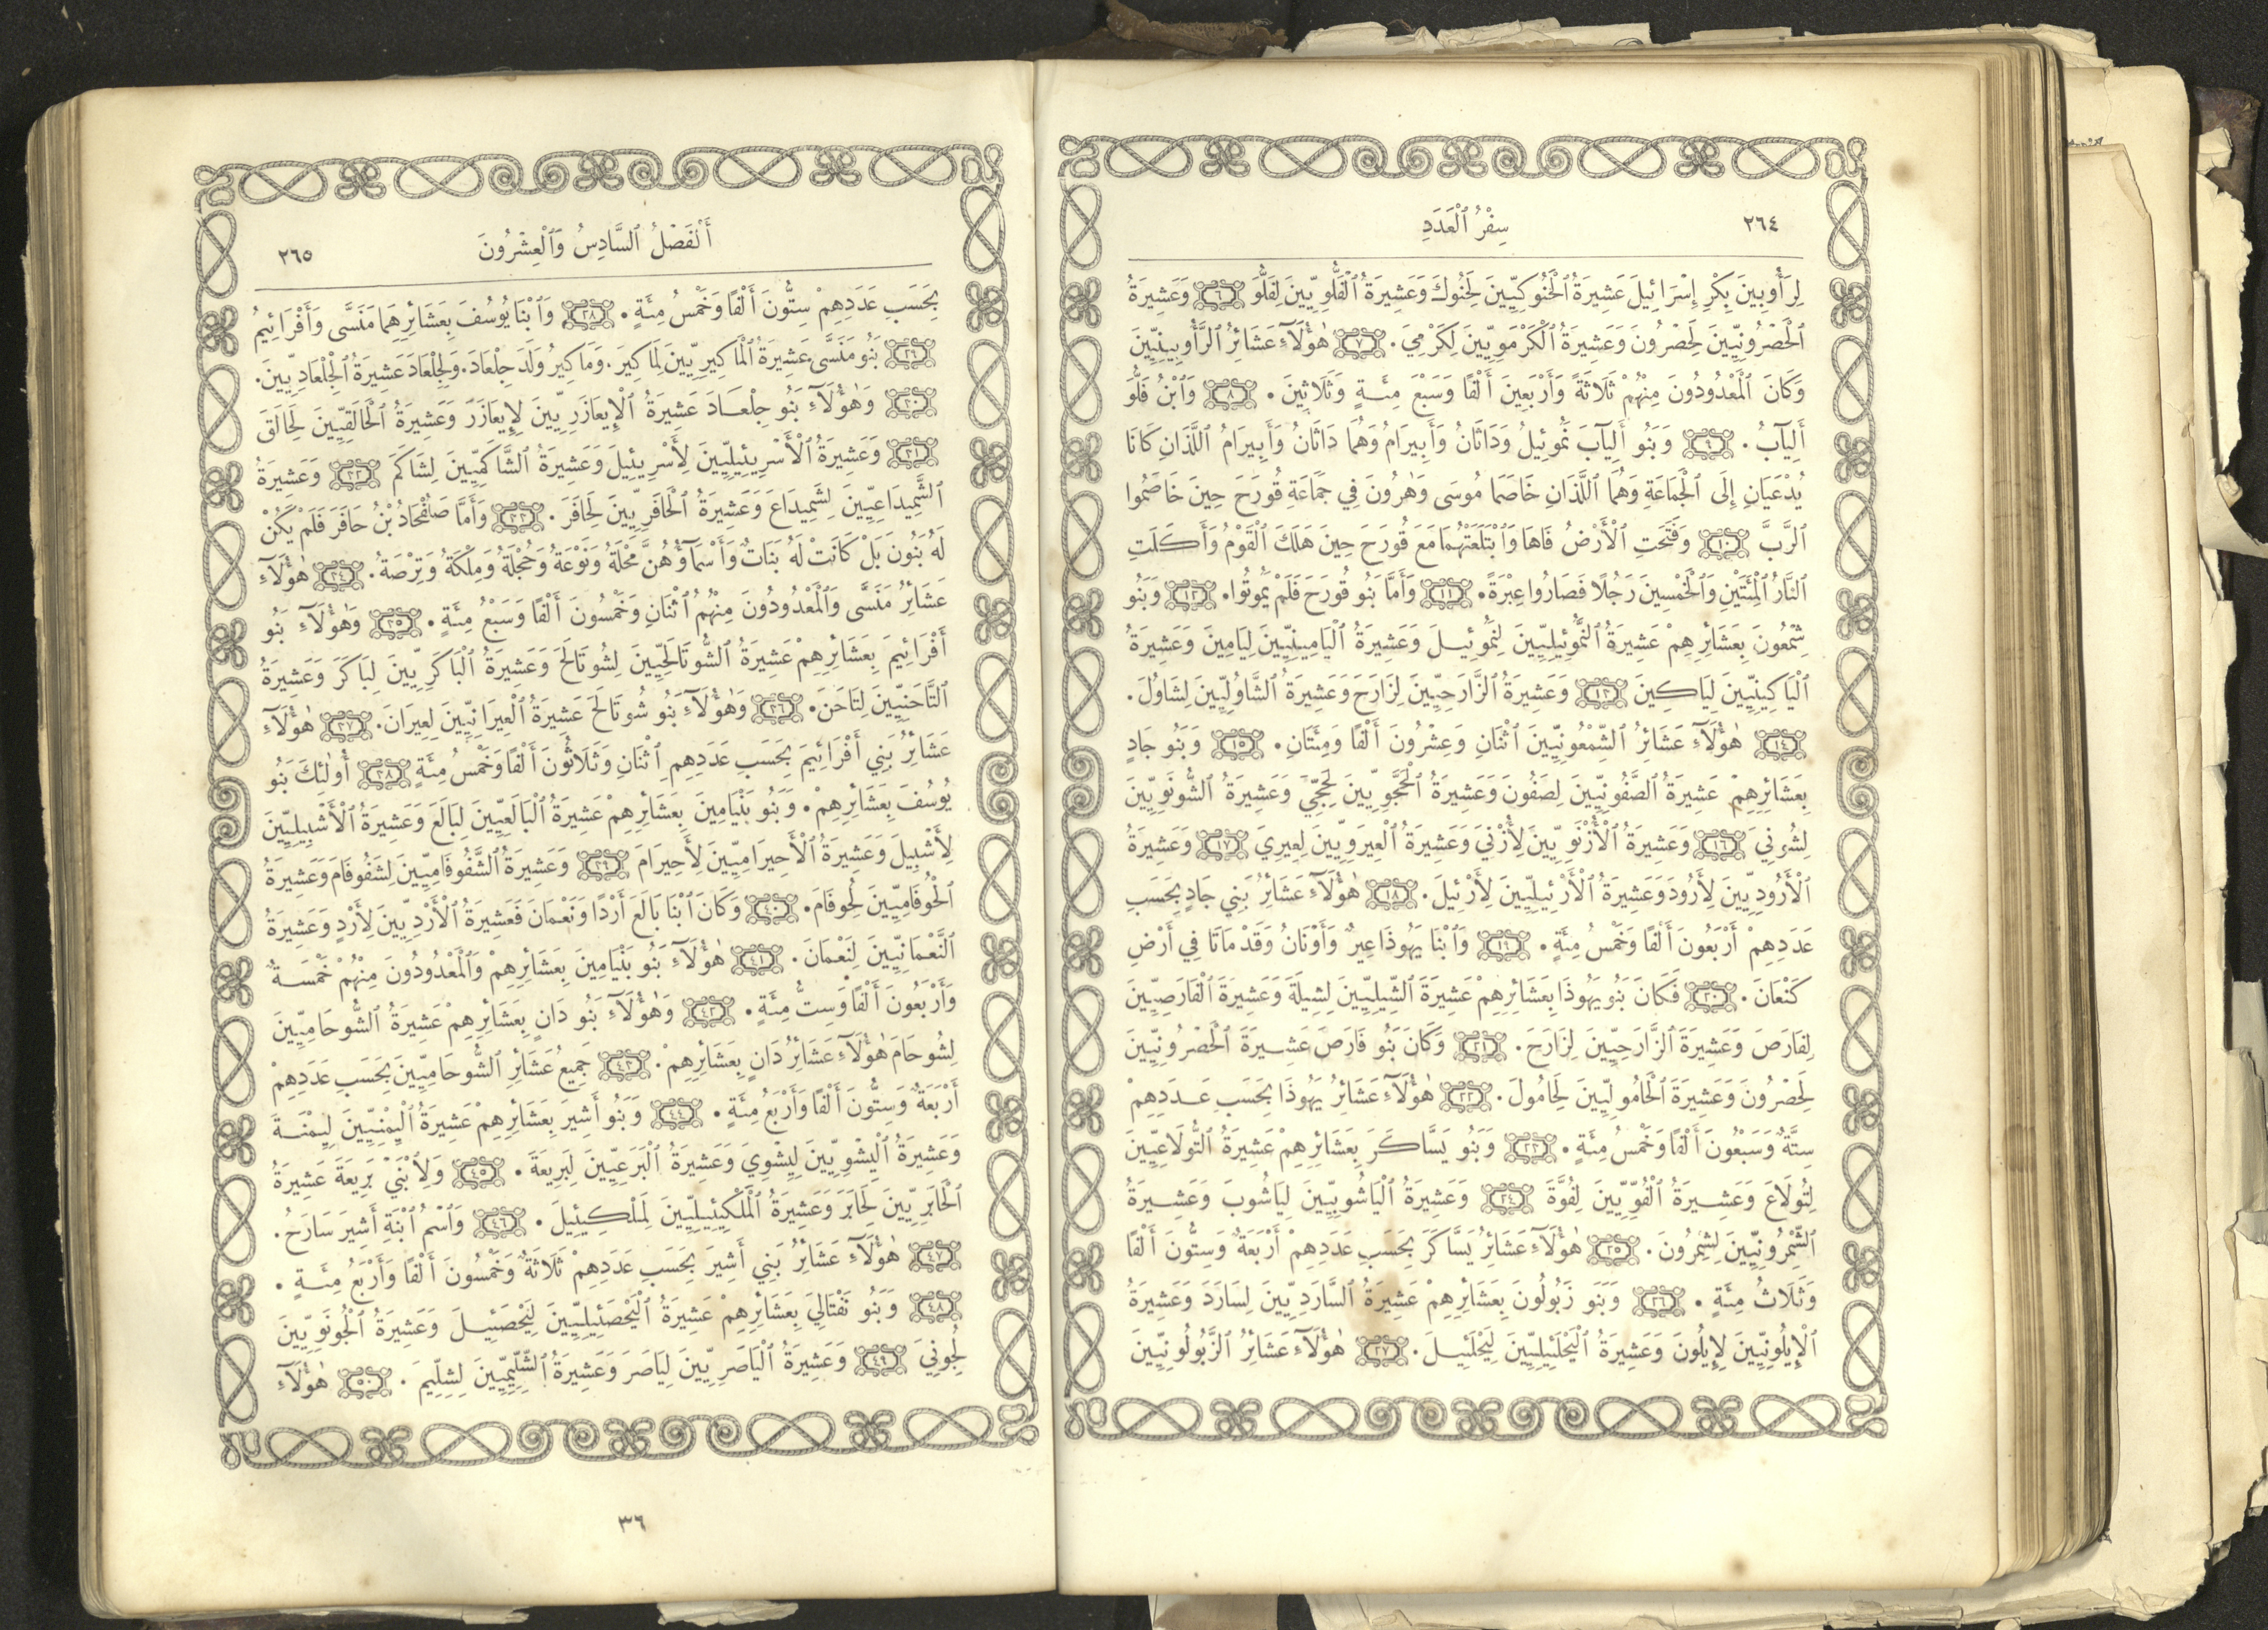 ٢٦٤
سِفْرُ ٱلْعَدَدِ
لِرَأُوبِينَ بِكْرِ إِسْرَائِيلَ عَشِيرَةُ ٱلْحَنُوكِيِّينَ لِحَنُوكَ وَعَشِيرَةُ ٱلْفَلُّوِيِّينَ لِفَلُّوَ ٦ وَعَشِيرَةُ
ٱلْحَصْرُونِيِّينَ لِحَصْرُونَ وَعَشِيرَةُ ٱلْكَرْمَوِيِّينَ لِكَرْمِيَ. ٧ هٰؤُلَآءِ عَشَائِرُ ٱلرَّأُوبِينِيِّينَ
وَكَانَ ٱلْمَعْدُودُونَ مِنْهُمْ ثَلَاثَةً وَأَرْبَعِينَ أَلْفًا وَسَبْعَ مِئَةٍ وَثَلَاثِينَ. ٨ وَٱبْنُ فَلُّوَ
أَلِيآبُ. ٩ وَبَنُو أَلِيآبَ نَمُوئِيلُ وَدَاثَانُ وَأَبِيرَامُ وَهُمَا دَاثَانُ وَأَبِيرَامُ اللَّذَانِ كَانَا
يُدْعَيَانِ إِلَى ٱلْجَمَاعَةِ وَهُمَا اللَّذَانِ خَاصَمَا مُوسَى وَهٰرُونَ فِي جَمَاعَةِ قُورَحَ حِينَ خَاصَمُوا
ٱلرَّبَّ ١٠ وَفَتَحَتِ ٱلْأَرْضُ فَاهَا وَٱبْتَلَعَتْهُمَا مَعَ قُورَحَ حِينَ هَلَكَ ٱلْقَوْمُ وَأَكَلَتِ
ٱلنَّارُ ٱلْمِئَتَيْنِ وَٱلْخَمْسِينَ رَجُلًا فَصَارُوا عِبْرَةً. ١١ وَأَمَّا بَنُو قُورَحَ فَلَمْ يَمُوتُوا. ١٢ وَبَنُو
شِمْعُونَ بِعَشَائِرِهِمْ عَشِيرَةُ ٱلنَّمُوئِيلِيِّينَ لِنَمُوئِيلَ وَعَشِيرَةُ ٱلْيَامِينِيِّينَ لِيَامِينَ وَعَشِيرَةُ
ٱلْيَاكِينِيِّينَ لِيَاكِينَ ١٣ وَعَشِيرَةُ ٱلزَّارَحِيِّينَ لِزَارَحَ وَعَشِيرَةُ ٱلشَّاوُلِيِّينَ لِشَاوُلَ.
١٤ هٰؤُلَآءِ عَشَائِرُ ٱلشِّمْعُونِيِّينَ ٱثْنَانِ وَعِشْرُونَ أَلْفًا وَمِئَتَانِ. ١٥ وَبَنُو جَادٍ
بِعَشَائِرِهِمْ عَشِيرَةُ ٱلصَّفُونِيِّينَ لِصَفُونَ وَعَشِيرَةُ ٱلْحَجَّوِيِّينَ لِحَجِّيَ وَعَشِيرَةُ ٱلشُّونَوِيِّينَ
لِشُونِيَ ١٦ وَعَشِيرَةُ ٱلْأُزْنَوِيِّينَ لِأُزْنِيَ وَعَشِيرَةُ ٱلْعِيرَوِيِّينَ لِعِيرِيَ ١٧ وَعَشِيرَةُ
ٱلْأَرُودِيِّينَ لِأَرُودَ وَعَشِيرَةُ ٱلْأَرْئِيلِيِّينَ لِأَرْئِيلَ. ١٨ هٰؤُلَآءِ عَشَائِرُ بَنِي جَادٍ بِحَسَبِ
عَدَدِهِمْ أَرْبَعُونَ أَلْفًا وَخَمْسُ مِئَةٍ. ١٩ وَٱبْنَا يَهُوذَا عِيرٌ وَأَوْنَانُ وَقَدْ مَاتَا فِي أَرْضِ
كَنْعَانَ. ٢٠ فَكَانَ بَنُو يَهُوذَا بِعَشَائِرِهِمْ عَشِيرَةَ ٱلشِّيلِيِّينَ لِشِيلَةَ وَعَشِيرَةَ ٱلْفَارَصِيِّينَ
لِفَارَصَ وَعَشِيرَةَ ٱلزَّارَحِيِّينَ لِزَارَحَ. ٢١ وَكَانَ بَنُو فَارَصَ عَشِيرَةَ ٱلْحَصْرُونِيِّينَ
لِحَصْرُونَ وَعَشِيرَةَ ٱلْحَامُولِيِّينَ لِحَامُولَ. ٢٢ هٰؤُلَآءِ عَشَائِرُ يَهُوذَا بِحَسَبِ عَدَدِهِمْ
سِتَّةٌ وَسَبْعُونَ أَلْفًا وَخَمْسُ مِئَةٍ. ٢٣ وَبَنُو يَسَّاكَرَ بِعَشَائِرِهِمْ عَشِيرَةُ ٱلتُّولَاعِيِّينَ
لِتُولَاعَ وَعَشِيرَةُ ٱلْفُوِّيِّينَ لِفُوَّةَ ٢٤ وَعَشِيرَةُ ٱلْيَاشُوبِيِّينَ لِيَاشُوبَ وَعَشِيرَةُ
ٱلشِّمْرُونِيِّينَ لِشِمْرُونَ. ٢٥ هٰؤُلَآءِ عَشَائِرُ يَسَّاكَرَ بِحَسَبِ عَدَدِهِمْ أَرْبَعَةٌ وَسِتُّونَ أَلْفًا
وَثَلَاثُ مِئَةٍ. ٢٦ وَبَنُو زَبُولُونَ بِعَشَائِرِهِمْ عَشِيرَةُ ٱلسَّارَدِيِّينَ لِسَارَدَ وَعَشِيرَةُ
ٱلْإِيلُونِيِّينَ لِإِيلُونَ وَعَشِيرَةُ ٱلْيَحْلَئِيلِيِّينَ لِيَحْلَئِيلَ. ٢٧ هٰؤُلَآءِ عَشَائِرُ ٱلزَّبُولُونِيِّينَ
أَلْفَصْلُ ٱلسَّادِسُ وَٱلْعِشْرُونَ
٢٦٥
بِحَسَبِ عَدَدِهِمْ سِتُّونَ أَلْفًا وَخَمْسُ مِئَةٍ. ٢٨ وَٱبْنَا يُوسُفَ بِعَشَائِرِهِمَا مَنَسَّى وَأَفْرَائِيمُ
٢٩ بَنُو مَنَسَّى عَشِيرَةُ ٱلْمَاكِيرِيِّينَ لِمَاكِيرَ. وَمَاكِيرُ وَلَدَ جِلْعَادَ. وَلِجِلْعَادَ عَشِيرَةُ ٱلْجِلْعَادِيِّينَ.
٣٠ وَهٰؤُلَآءِ بَنُو جِلْعَادَ عَشِيرَةُ ٱلْإِيعَازَرِيِّينَ لِإِيعَازَرَ وَعَشِيرَةُ ٱلْحَالَقِيِّينَ لِحَالَقَ
٣١ وَعَشِيرَةُ ٱلْأَسْرِيئِيلِيِّينَ لِأَسْرِيئِيلَ وَعَشِيرَةُ ٱلشَّاكَمِيِّينَ لِشَاكَمَ ٣٢ وَعَشِيرَةُ
ٱلشَّمِيدَاعِيِّينَ لِشَمِيدَاعَ وَعَشِيرَةُ ٱلْحَافَرِيِّينَ لِحَافَرَ. ٣٣ وَأَمَّا صَلُفْحَادُ بْنُ حَافَرَ فَلَمْ يَكُنْ
لَهُ بَنُونَ بَلْ كَانَتْ لَهُ بَنَاتٌ وَأَسْمَآؤُهُنَّ مَحْلَةُ وَنَوْعَةُ وَحُجْلَةُ وَمِلْكَةُ وَتِرْصَةُ. ٣٤ هٰؤُلَآءِ
عَشَائِرُ مَنَسَّى وَٱلْمَعْدُودُونَ مِنْهُمُ ٱثْنَانِ وَخَمْسُونَ أَلْفًا وَسَبْعُ مِئَةٍ. ٣٥ وَهٰؤُلَآءِ بَنُو
أَفْرَائِيمَ بِعَشَائِرِهِمْ عَشِيرَةُ ٱلشُّوتَالَحِيِّينَ لِشُوتَالَحَ وَعَشِيرَةُ ٱلْبَاكَرِيِّينَ لِبَاكَرَ وَعَشِيرَةُ
ٱلتَّاحَنِيِّينَ لِتَاحَنَ. ٣٦ وَهٰؤُلَآءِ بَنُو شُوتَالَحَ عَشِيرَةُ ٱلْعِيرَانِيِّينَ لِعِيرَانَ. ٣٧ هٰؤُلَآءِ
عَشَائِرُ بَنِي أَفْرَائِيمَ بِحَسَبِ عَدَدِهِمِ ٱثْنَانِ وَثَلَاثُونَ أَلْفًا وَخَمْسُ مِئَةٍ ٣٨ أُولٰئِكَ بَنُو
يُوسُفَ بِعَشَائِرِهِمْ. وَبَنُو بَنْيَامِينَ بِعَشَائِرِهِمْ عَشِيرَةُ ٱلْبَالَعِيِّينَ لِبَالَعَ وَعَشِيرَةُ ٱلْأَشْبِيلِيِّينَ
لِأَشْبِيلَ وَعَشِيرَةُ ٱلْأَحِيرَامِيِّينَ لِأَحِيرَامَ ٣٩ وَعَشِيرَةُ ٱلشَّفُوفَامِيِّينَ لِشَفُوفَامَ وَعَشِيرَةُ
ٱلْحُوفَامِيِّينَ لِحُوفَامَ. ٤٠ وَكَانَ ٱبْنَا بَالَعَ أَرْدًا وَنَعْمَانَ فَعَشِيرَةُ ٱلْأَرْدِيِّينَ لِأَرْدٍ وَعَشِيرَةُ
ٱلنَّعْمَانِيِّينَ لِنَعْمَانَ. ٤١ هٰؤُلَآءِ بَنُو بَنْيَامِينَ بِعَشَائِرِهِمْ وَٱلْمَعْدُودُونَ مِنْهُمْ خَمْسَةٌ
وَأَرْبَعُونَ أَلْفًا وَسِتُّ مِئَةٍ. ٤٢ وَهٰؤُلَآءِ بَنُو دَانٍ بِعَشَائِرِهِمْ عَشِيرَةُ ٱلشُّوحَامِيِّينَ
لِشُوحَامَ هٰؤُلَآءِ عَشَائِرُ دَانٍ بِعَشَائِرِهِمْ. ٤٣ جَمِيعُ عَشَائِرِ ٱلشُّوحَامِيِّينَ بِحَسَبِ عَدَدِهِمْ
أَرْبَعَةٌ وَسِتُّونَ أَلْفًا وَأَرْبَعُ مِئَةٍ. ٤٤ وَبَنُو أَشِيرَ بِعَشَائِرِهِمْ عَشِيرَةُ ٱلْيِمْنِيِّينَ لِيِمْنَةَ
وَعَشِيرَةُ ٱلْيِشْوِيِّينَ لِيِشْوِيَ وَعَشِيرَةُ ٱلْبَرَعِيِّينَ لِبَرِيعَةَ. ٤٥ وَلِٱبْنَيْ بَرِيعَةَ عَشِيرَةُ
ٱلْحَابَرِيِّينَ لِحَابَرَ وَعَشِيرَةُ ٱلْمَلْكِيئِيلِيِّينَ لِمَلْكِيئِيلَ. ٤٦ وَٱسْمُ ٱبْنَةِ أَشِيرَ سَارَحُ.
٤٧ هٰؤُلَآءِ عَشَائِرُ بَنِي أَشِيرَ بِحَسَبِ عَدَدِهِمْ ثَلَاثَةٌ وَخَمْسُونَ أَلْفًا وَأَرْبَعُ مِئَةٍ.
٤٨ وَبَنُو نَفْتَالِيَ بِعَشَائِرِهِمْ عَشِيرَةُ ٱلْيَحْصَئِيلِيِّينَ لِيَحْصَئِيلَ وَعَشِيرَةُ ٱلْجُونَوِيِّينَ
لِجُونِيَ ٤٩ وَعَشِيرَةُ ٱلْيَاصَرِيِّينَ لِيَاصَرَ وَعَشِيرَةُ ٱلشِّلِّيمِيِّينَ لِشِلِّيمَ. ٥٠ هٰؤُلَآءِ
٣٦